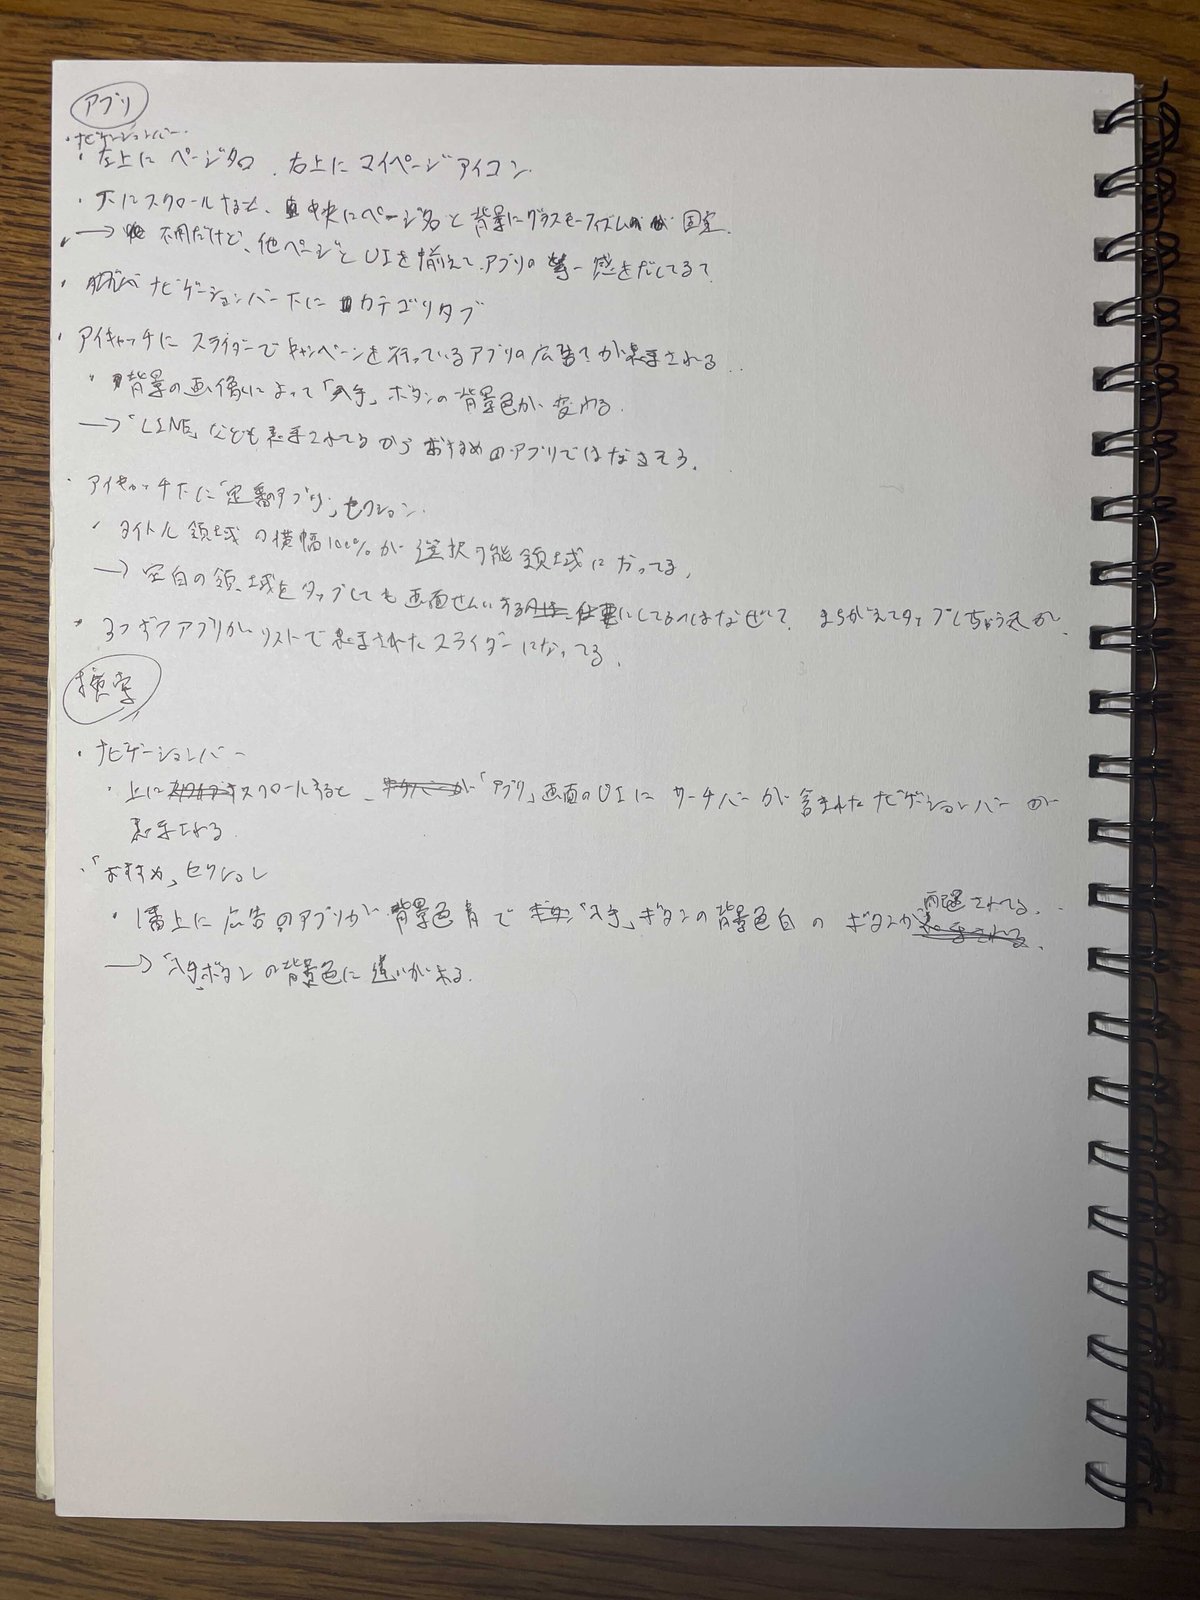 アプリ
・ナビゲーションバー
・左上にページ名、右上にマイページアイコン
・下にスクロールすると、中央にページ名と背景にグラスモーフィズムが固定
→不用だけど、他ページとUIを揃えて、アプリの統一感をだしてる?
・ナビゲーションバー下にカテゴリタブ
・アイキャッチにスライダーでキャンペーンを行っているアプリの広告が表示される
・背景の画像によって「入手」ボタンの背景色が変わる
→「LINE」なども表示されてるからおすすめのアプリではなさそう。
・アイキャッチ下に「定番のアプリ」セクション
・タイトル領域の横幅100%が選択可能領域になってる。
→空白の領域をタップしても画面せんいするにしてるのはなぜ? まちがえてタップしちゃうきが
・3つずつアプリがリストで表示されたスライダーになってる。
検索
・ナビゲーションバー
・上にスクロールすると、「アプリ」画面のUIにサーチバーが含まれたナビゲーションバーが
表示される
・「おすすめ」セクション
・1番上に広告のアプリが背景色青で「入手」ボタンの背景色白のボタンが配置されてる。
→「入手」ボタンの背景色に違いがある。